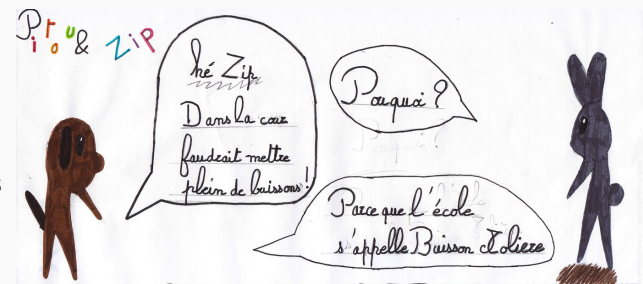 Pirou & Zip
hé Zip
Dans la cour
faudrait mettre
plein de buissons!
Pouquoi ?
Parce que l'école
s'appelle Buisson Molière